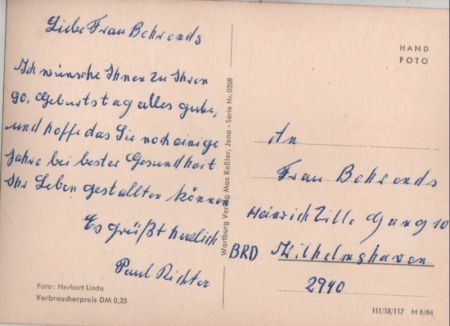 Liebe Frau Behrends
Ich wünsche Ihnen zu Ihren
90. Geburtstag alles gute,
und hoffe das Sie noch einige
Jahre bei bester Gesundheit
Ihr Leben gestallten können
Es grüßt herzlich
Paul Richter
Foto: Herbert Linde
Verbraucherpreis DM 0,25
Wartburg Verlag Max Keßler, Jena - Serie Nr. 0398
HAND
FOTO
An
Frau Behrends
Heinrich Zille Gang 10
BRD Wilhelmshaven
2940
III/18/117 M 6/64